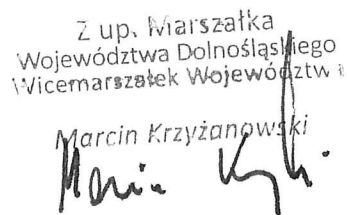 Z up. Marszałka
Województwa Dolnośląskiego
Wicemarszałek Województwa
Marcin Krzyżanowski
Marcin